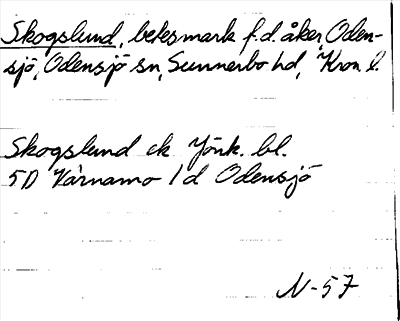 Skogslund, betesmark f.d. åker, Oden-
sjö, Odensjö sn, Sunnerbo hd, Kron l.
Skogslund ek Jönk. bl.
5D Värnamo 1d Odensjö
N-57